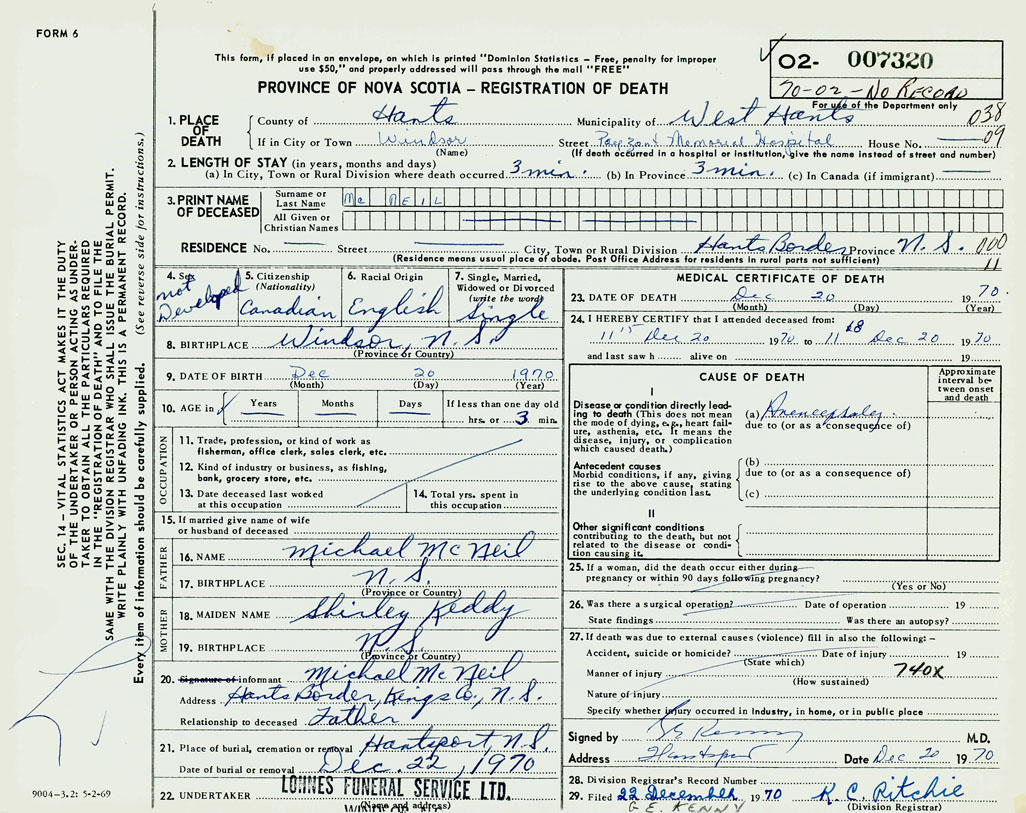 FORM 6
This form, if placed in an envelope, on which is printed "Dominion Statistics – Free, penalty for improper
use $50," and properly addressed will pass through the mail "FREE"
PROVINCE OF NOVA SCOTIA – REGISTRATION OF DEATH
02- 007320
70-02 - No RECORD
For use of the Department only
038
09
1. PLACE OF DEATH
County of Hants Municipality of West Hants
If in City or Town Windsor Street Payzant Memorial Hospital House No.
(Name) (If death occurred in a hospital or institution, give the name instead of street and number)
2. LENGTH OF STAY (in years, months and days)
(a) In City, Town or Rural Division where death occurred 3 min. (b) In Province 3 min. (c) In Canada (if immigrant)
3. PRINT NAME OF DECEASED
Surname or Last Name Mc NEIL
All Given or Christian Names
RESIDENCE No. Street City, Town or Rural Division Hants Border Province N.S. 000
(Residence means usual place of abode. Post Office Address for residents in rural parts not sufficient) 11
4. Sex not Developed
5. Citizenship (Nationality) Canadian
6. Racial Origin English
7. Single, Married, Widowed or Divorced (write the word) Single
8. BIRTHPLACE Windsor, N.S.
(Province or Country)
9. DATE OF BIRTH Dec 20 1970
(Month) (Day) (Year)
10. AGE in Years Months Days If less than one day old
hrs. or 3 min.
OCCUPATION
11. Trade, profession, or kind of work as
fisherman, office clerk, sales clerk, etc.
12. Kind of industry or business, as fishing,
bank, grocery store, etc.
13. Date deceased last worked
at this occupation
14. Total yrs. spent in
this occupation
15. If married give name of wife
or husband of deceased
FATHER
16. NAME Michael McNeil
17. BIRTHPLACE N.S.
(Province or Country)
MOTHER
18. MAIDEN NAME Shirley Keddy
19. BIRTHPLACE N.S.
(Province or Country)
20. Signature of informant Michael McNeil
Address Hants Border, Kings Co., N.S.
Relationship to deceased Father
21. Place of burial, cremation or removal Hantsport N.S.
Date of burial or removal Dec. 22, 1970
22. UNDERTAKER LOHNES FUNERAL SERVICE LTD.
(Name and address)
MEDICAL CERTIFICATE OF DEATH
23. DATE OF DEATH Dec 20 1970.
(Month) (Day) (Year)
24. I HEREBY CERTIFY that I attended deceased from:
11 15 Dec 20 1970 to 11 18 Dec 20 1970
and last saw h alive on 19
CAUSE OF DEATH
Approximate interval between onset and death
I
Disease or condition directly leading to death (This does not mean
the mode of dying, e.g., heart failure, asthenia, etc. It means the
disease, injury, or complication
which caused death.)
(a) Anencephaly
due to (or as a consequence of)
Antecedent causes
Morbid conditions, if any, giving
rise to the above cause, stating
the underlying condition last.
(b)
due to (or as a consequence of)
(c)
II
Other significant conditions
contributing to the death, but not
related to the disease or condition causing it.
25. If a woman, did the death occur either during
pregnancy or within 90 days following pregnancy?
(Yes or No)
26. Was there a surgical operation? Date of operation 19
State findings Was there an autopsy?
27. If death was due to external causes (violence) fill in also the following: –
Accident, suicide or homicide? Date of injury 19
(State which)
Manner of injury 740X
(How sustained)
Nature of injury
Specify whether injury occurred in Industry, in home, or in public place
Signed by G E Kenny M.D.
Address Hantsport Date Dec 20 1970
28. Division Registrar's Record Number
29. Filed 22 December 1970 R. C. Ritchie
G.E. KENNY (Division Registrar)
SEC. 14 – VITAL STATISTICS ACT MAKES IT THE DUTY
OF THE UNDERTAKER OR PERSON ACTING AS UNDER-
TAKER TO OBTAIN ALL THE PARTICULARS REQUIRED
IN THE "REGISTRATION OF DEATH" AND TO FILE THE
SAME WITH THE DIVISION REGISTRAR WHO SHALL ISSUE THE BURIAL PERMIT.
WRITE PLAINLY WITH UNFADING INK. THIS IS A PERMANENT RECORD.
Every item of information should be carefully supplied. (See reverse side for instructions.)
9004-3.2: 5-2-69